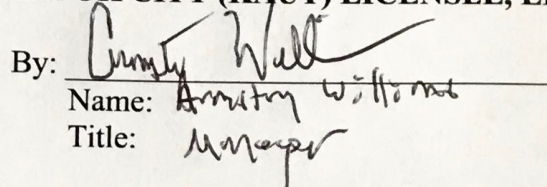 (KAUT) LICENSEE,
By:
Name: Armstrong Williams
Title: Manager